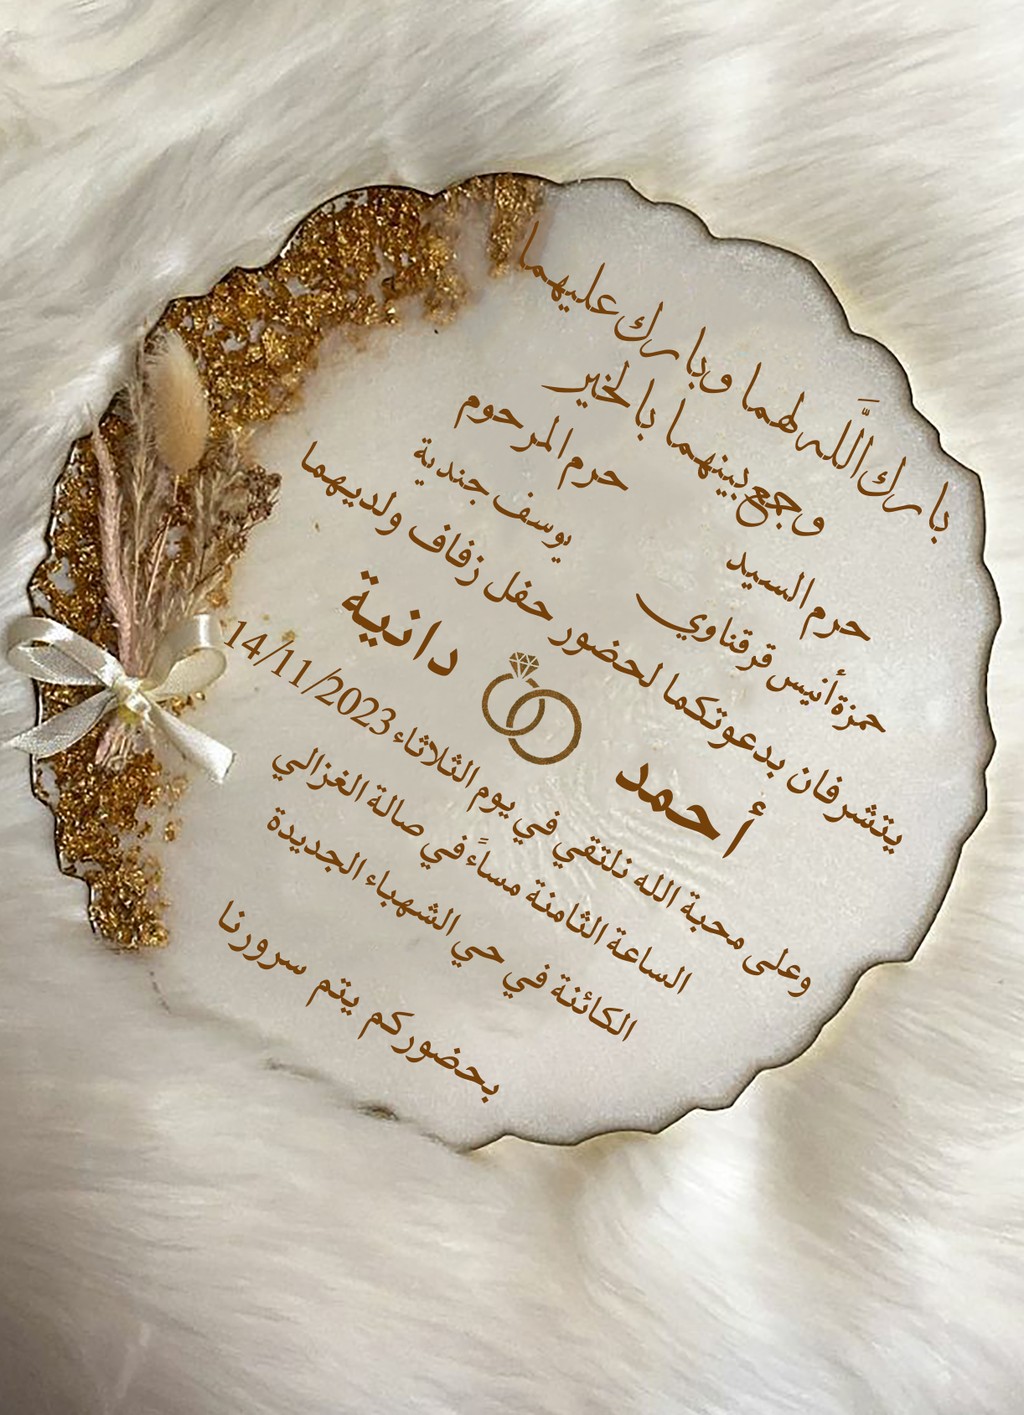 بارك الَّله لهما وبارك عليهما
وجمع بينهما بالخير
حرم السيد
حمزة أنيس قرقناوي
حرم المرحوم
يوسف جندية
يتشرفان بدعوتكما لحضور حفل زفاف ولديهما
أحمد
دانية
وعلى محبة الله نلتقي في يوم الثلاثاء 14/11/2023
الساعة الثامنة مساءً في صالة الغزالي
الكائنة في حي الشهباء الجديدة
بحضوركم يتم سرورنا